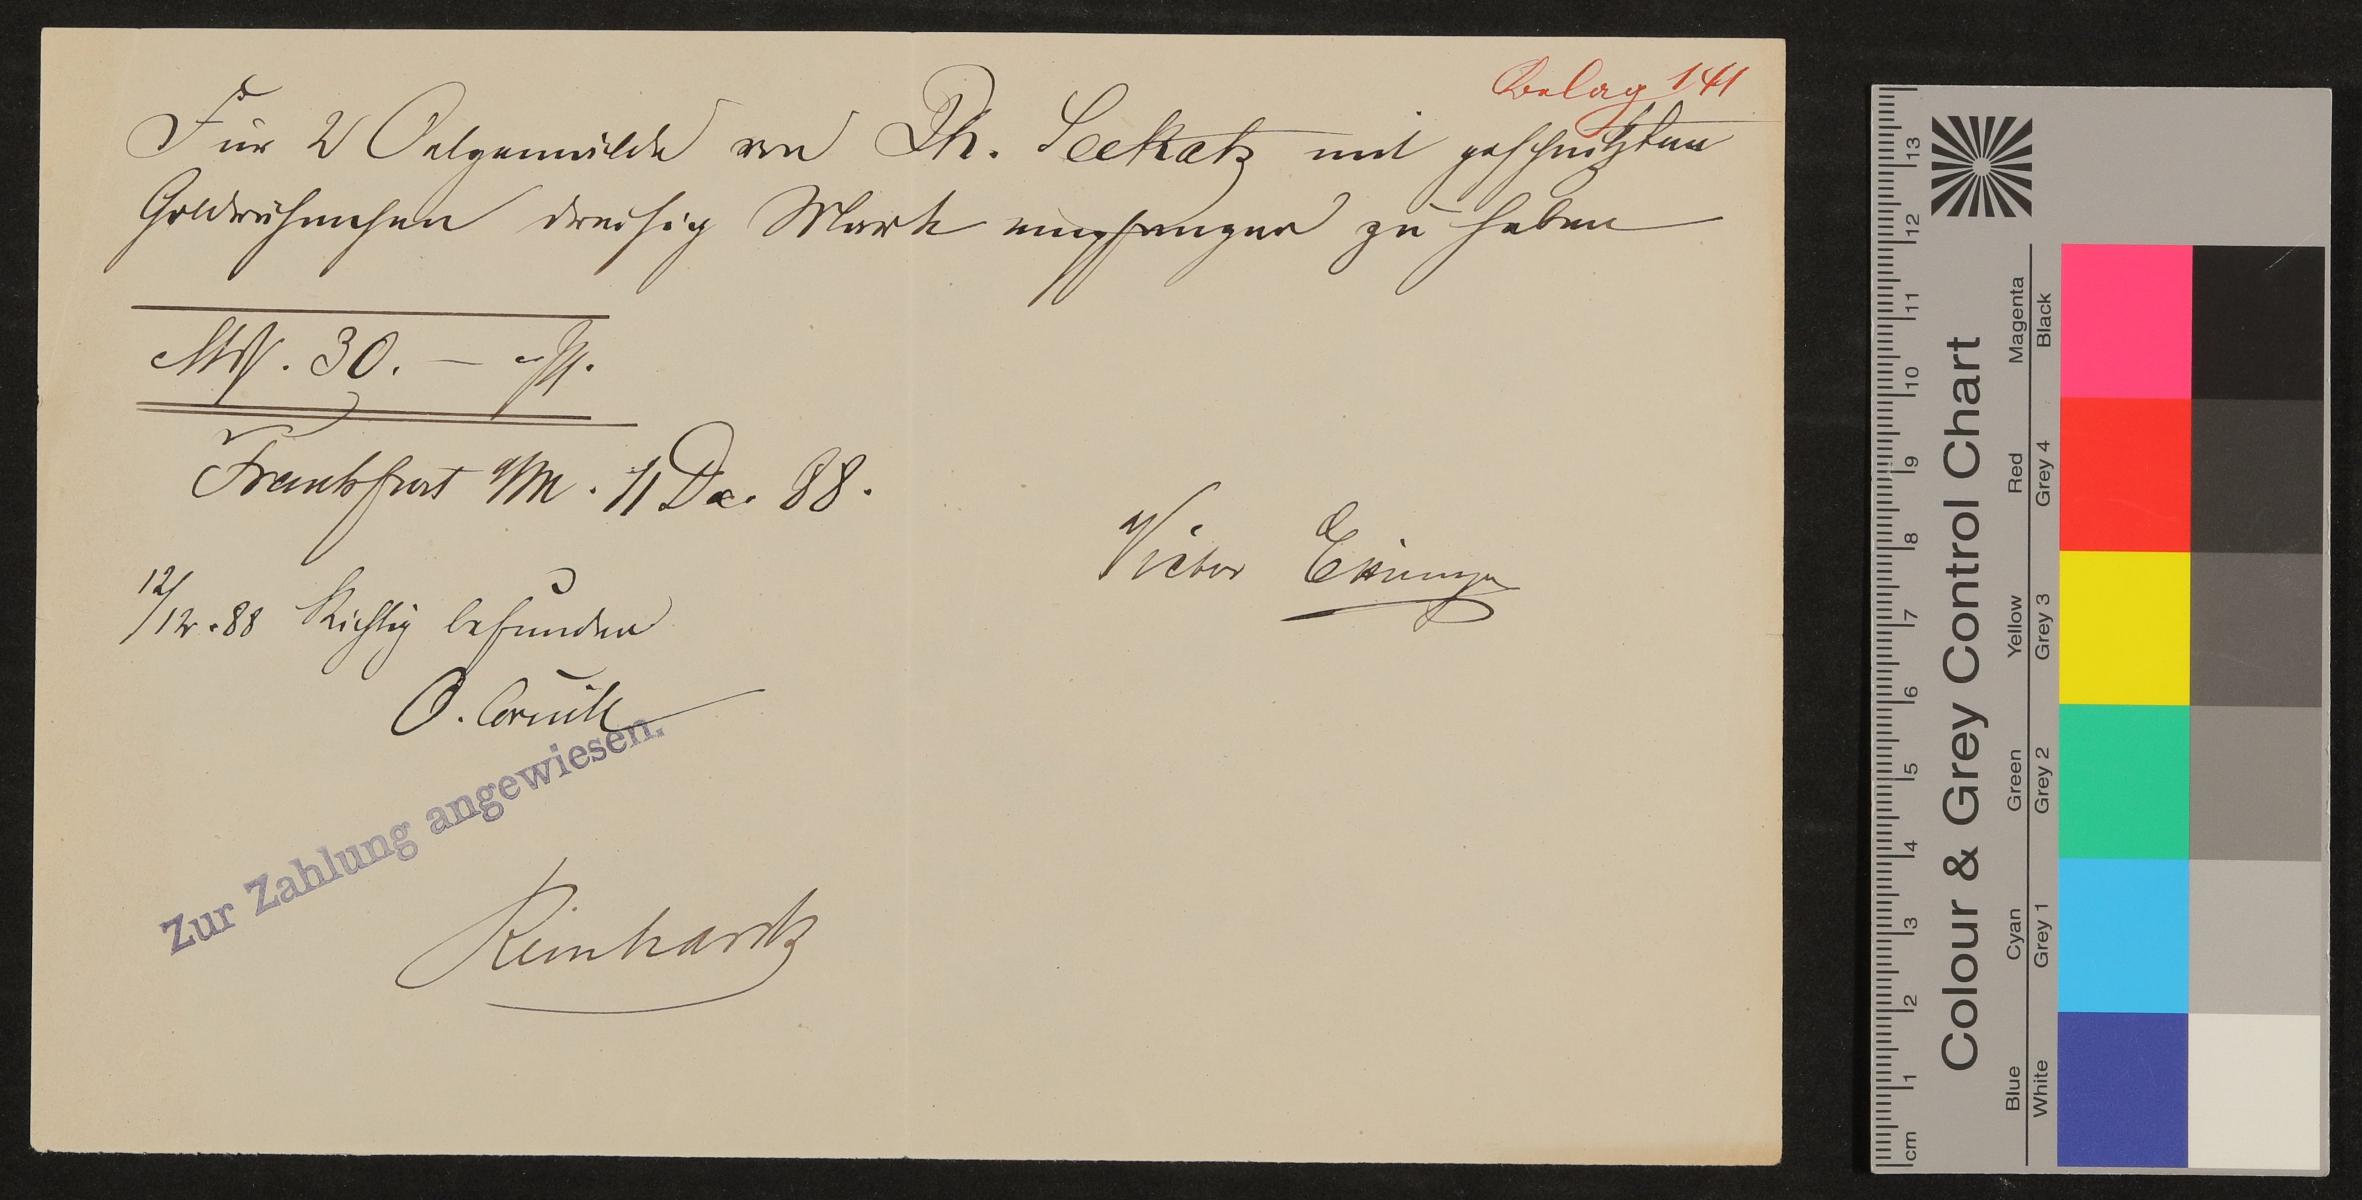 Belag 141
Für 2 Oelgemälde von Ph. Seekatz mit geschnitzten
Goldrähmchen dreisig Mark empfangen zu haben
Mk. 30. — Pf.
Frankfurt a/M. 11 Dec. 88.
Victor
12/12.88 Richtig befunden
O. Cornill
Zur Zahlung angewiesen.
Reinhardt
Colour & Grey Control Chart
Blue Cyan Green Yellow Red Magenta
White Grey 1 Grey 2 Grey 3 Grey 4 Black
cm 1 2 3 4 5 6 7 8 9 10 11 12 13